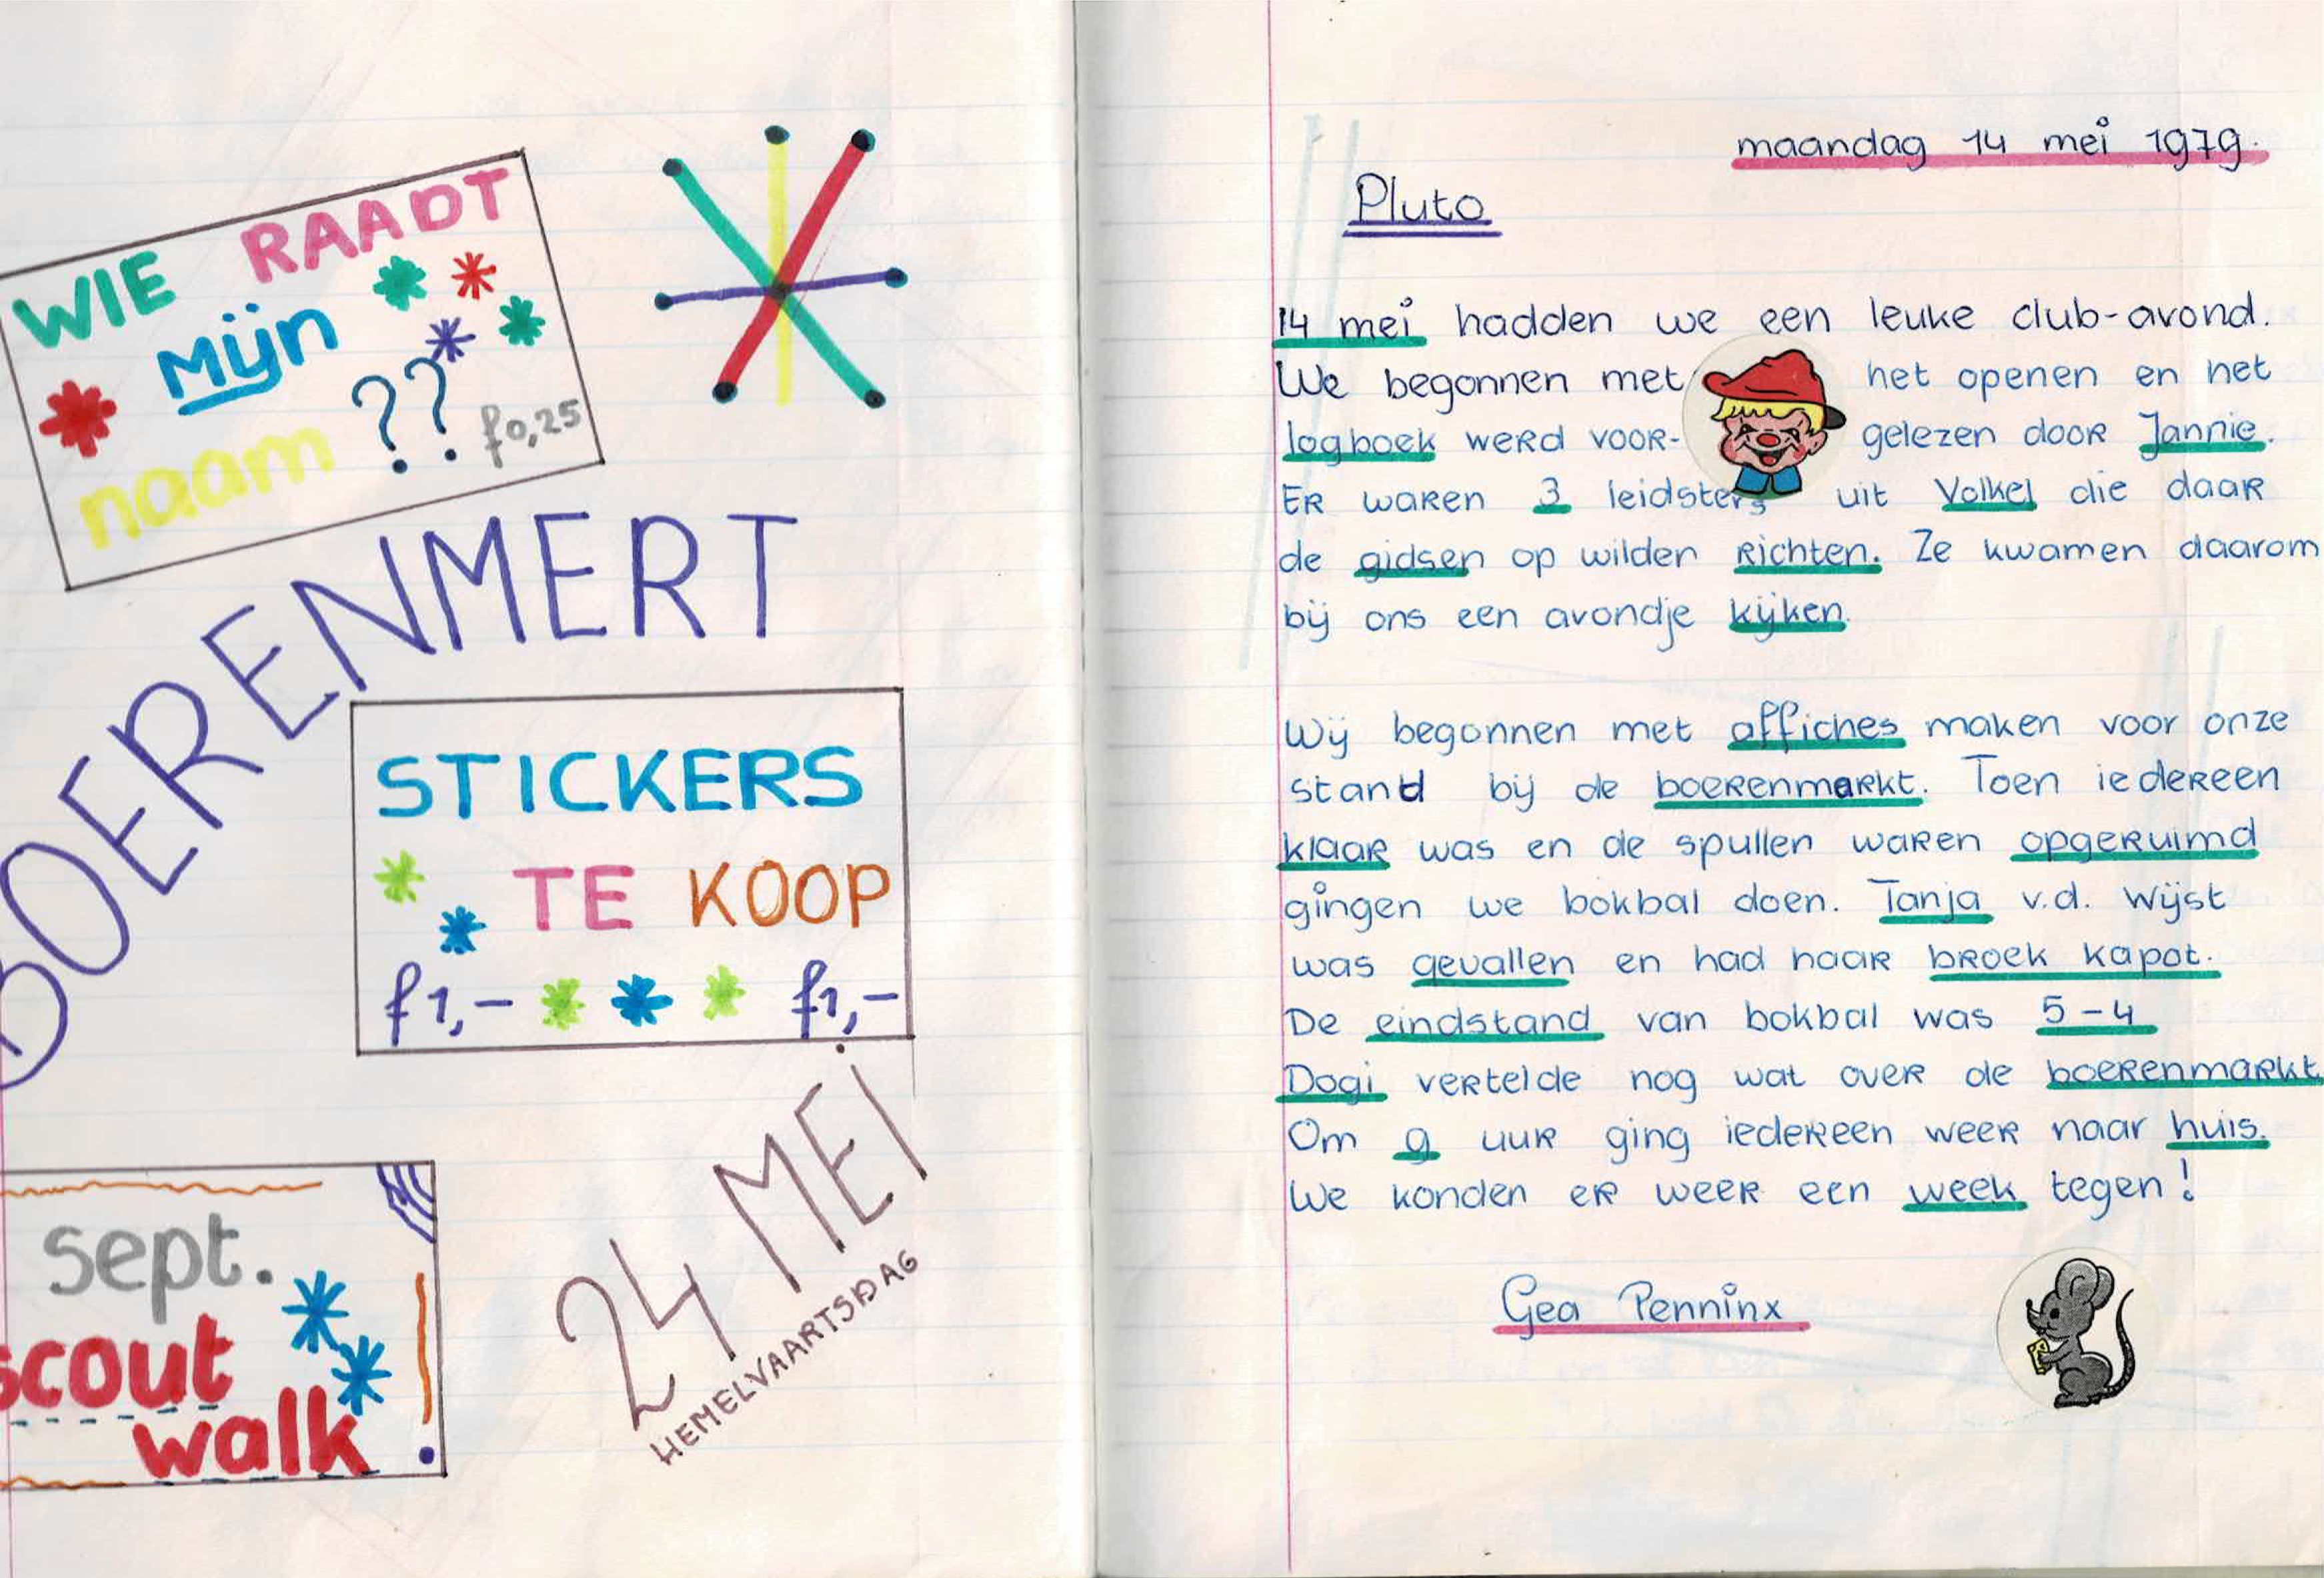 WIE RAADT
mijn
naam ?? f0,25
BOERENMERT
STICKERS
TE KOOP
f1,- f1,-
sept.
scout
walk
24 MEI
HEMELVAARTSDAG
maandag 14 mei 1979.
Pluto
14 mei hadden we een leuke club-avond.
We begonnen met het openen en het
logboek werd voor- gelezen door Jannie.
Er waren 3 leidsters uit Volkel die daar
de gidsen op wilden richten. Ze kwamen daarom
bij ons een avondje kijken.
Wij begonnen met affiches maken voor onze
stand bij de boerenmarkt. Toen iedereen
klaar was en de spullen waren opgeruimd
gingen we bokbal doen. Tanja v.d. Wijst
was gevallen en had haar broek kapot.
De eindstand van bokbal was 5-4
Dogi vertelde nog wat over de boerenmarkt
Om 9 uur ging iedereen weer naar huis.
We konden er weer een week tegen!
Gea Penninx